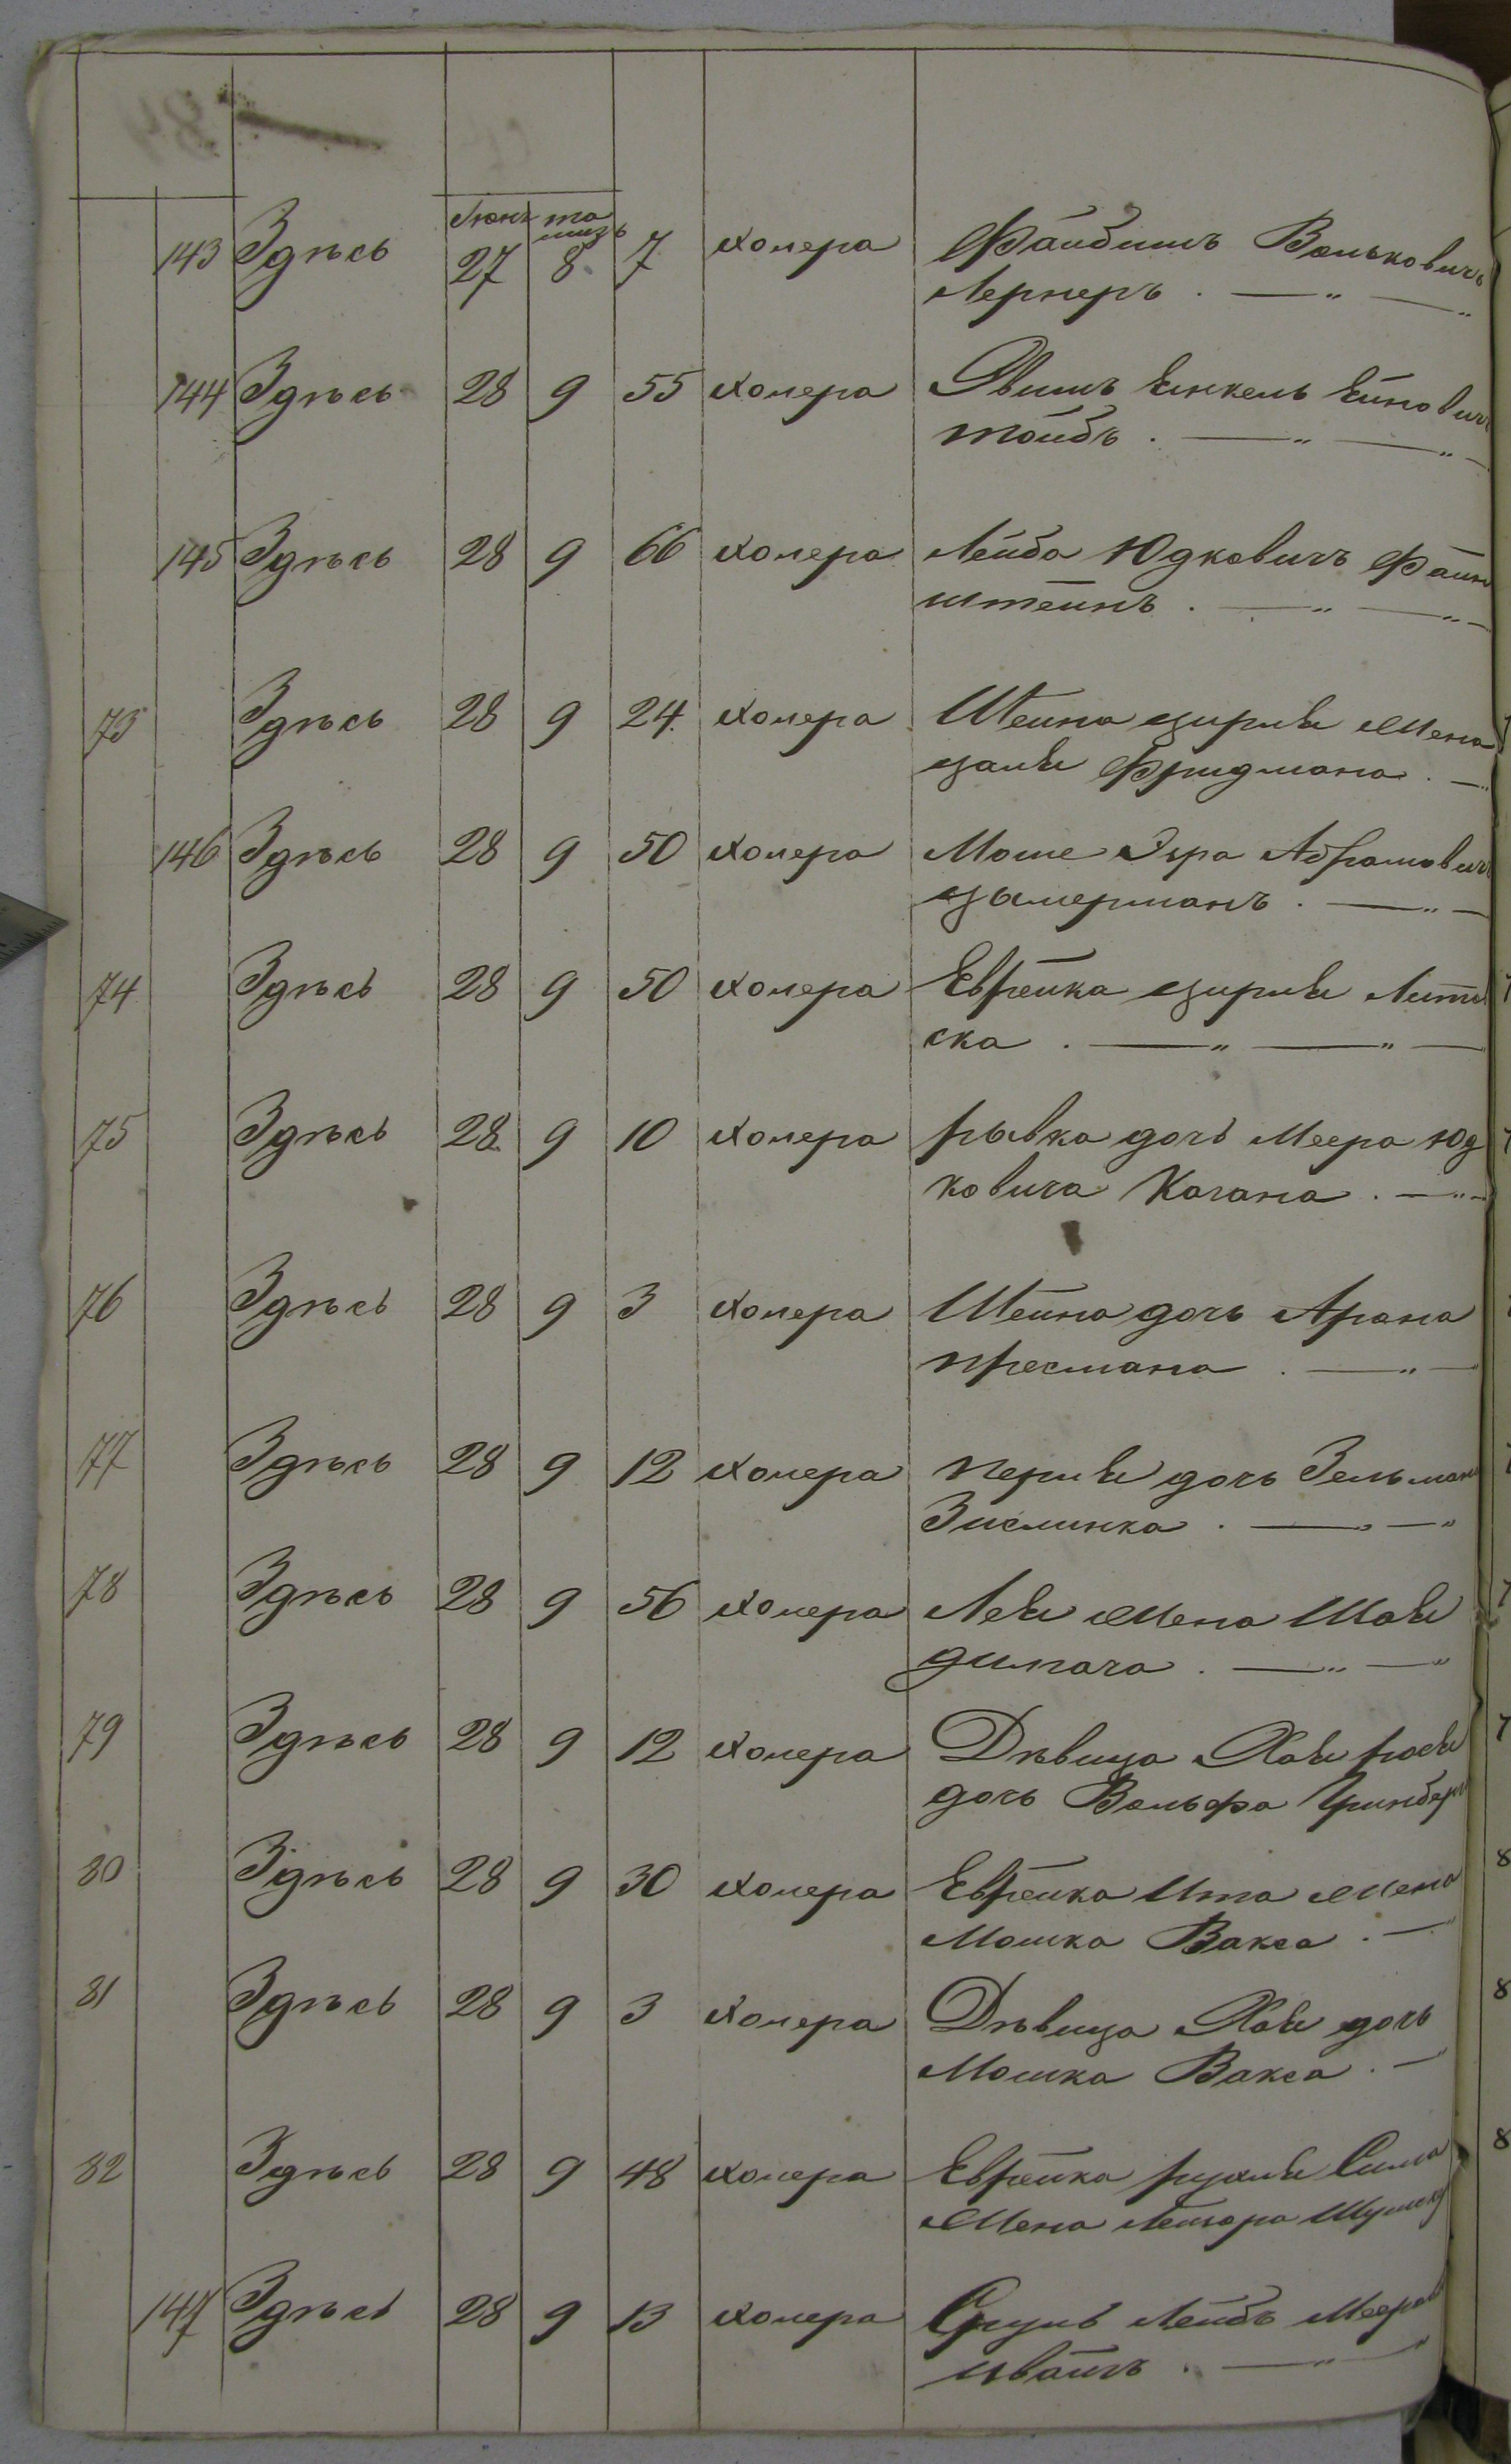 Іюнь та
мизъ
143 Здѣсь 27 8 7 холера Файбишъ Вольковичъ
Лернеръ . — " — "
144 Здѣсь 28 9 55 холера Янкель
тойбъ . — " — "
145 Здѣсь 28 9 66 холера Лейба Юдковичъ Файн
штейнъ . — " — "
73 Здѣсь 28 9 24 холера Шейна цирля жена
Фридмана . — "
146 Здѣсь 28 9 50 холера Моше Абрамовичъ
цымерманъ . — " —
74 Здѣсь 28 9 50 холера Еврейка цирля
ска . — " — " —
75 Здѣсь 28 9 10 холера рывка дочь Меера Юд
ковича Кагана . — "
76 Здѣсь 28 9 3 холера Шейна дочь Арона
пресмана . — " —
77 Здѣсь 28 9 12 холера перля дочь Зельмана
. — " — "
78 Здѣсь 28 9 56 холера Лея жена Шаи
. — " — "
79 Здѣсь 28 9 12 холера Дѣвица Хая
дочь Вольфа Гринберга
80 Здѣсь 28 9 30 холера Еврейка Ита жена
Мошка Вакса . — "
81 Здѣсь 28 9 3 холера Дѣвица Хая дочь
Мошка Вакса . — "
82 Здѣсь 28 9 48 холера Еврейка рухля Сима
жена Лейзора
147 Здѣсь 28 9 13 холера Сруль Лейбъ
. — " — "